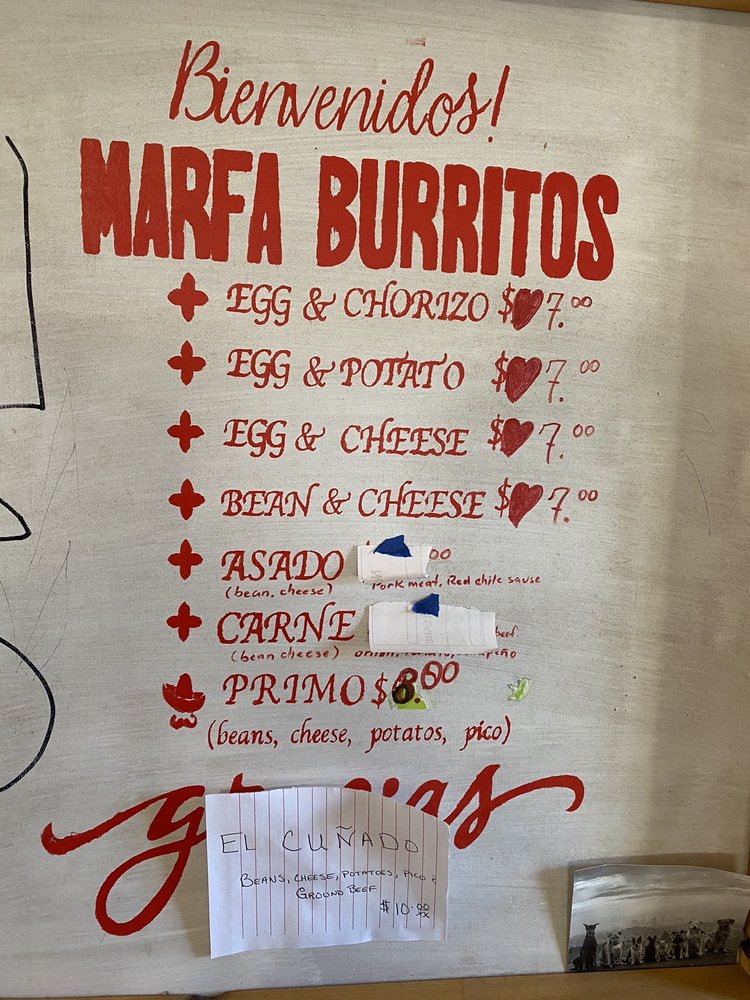 Bienvenidos!
MARFA BURRITOS
EGG & CHORIZO $ 7.00
EGG & POTATO $ 7.00
EGG & CHEESE $ 7.00
BEAN & CHEESE $ 7.00
ASADO 00
(bean, cheese) Pork meat, Red chile sause
CARNE beef
(bean cheese)
PRIMO $
(beans, cheese, potatos, pico)
EL CUÑADO
BEANS, CHEESE, POTATOES, PICO &
GROUND BEEF
$ 10.00
TX